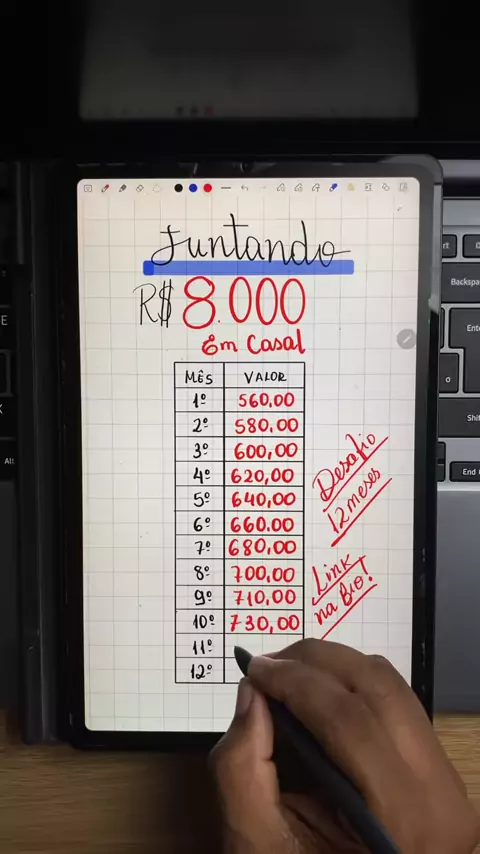 Juntando
R$ 8.000
Em Casal
MÊS VALOR
1º 560,00
2º 580.00
3º 600,00
4º 620,00
5º 640,00
6º 660.00
7º 680,00
8º 700,00
9º 710,00
10º 730,00
11º
12º
Desafio
12 meses
Link
na Bio!
Backspa
Ente
Shif
End
Alt